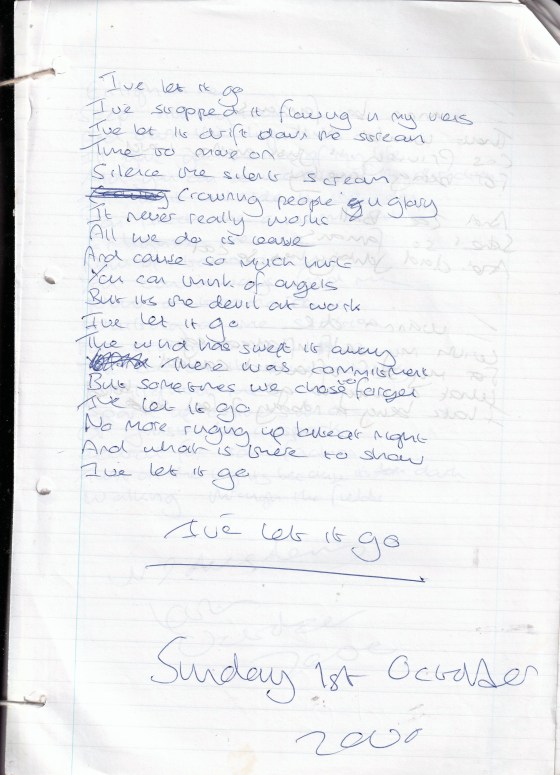 I've let it go
I've stopped it flowing in my veins
I've let it drift down the stream
Time to move on
Silence the silent scream
Crowning people in glory
It never really works
All we do is leave
And cause so much hurt
You can think of angels
But its the devil at work
I've let it go
The wind has swept it away
There was commitment
But sometimes we chose to forget
I've let it go
No more ringing up late at night
And what is there to show
I've let it go
I've let it go
Sunday 1st October
2000